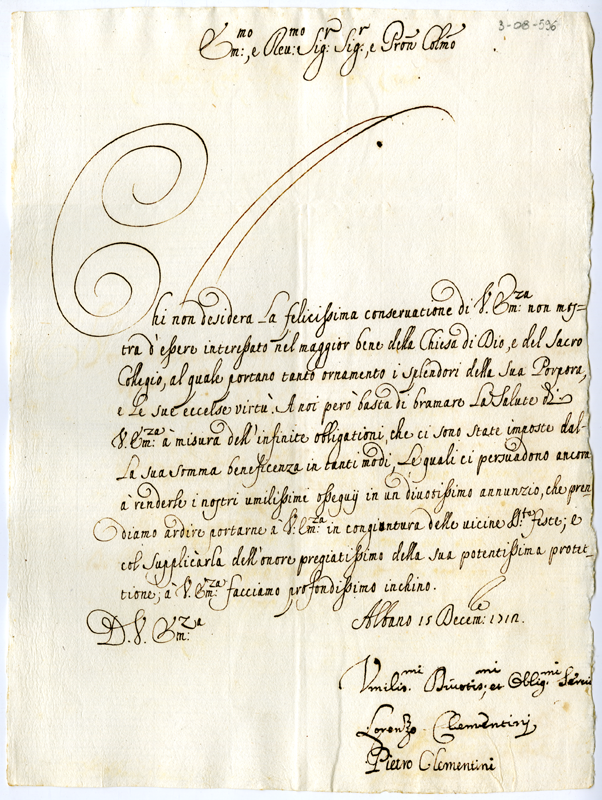 3-08-596
Em:mo, e Reu:mo Sig:r Sig:r, e Pron Colmo
Chi non desidera La felicissima conseruatione di V. Em:za non mos=
tra d'essere interessato nel maggior bene della Chiesa di Dio, e del Sacro
Collegio, al quale portano tanto ornamento i splendori della Sua Porpora,
e Le sue eccelse virtù. A noi però basta di bramare La Salute di
V. Em:za à misura dell'infinite obligationi, che ci sono state imposte dal=
La sua somma beneficenza in tanti modi, Le quali ci persuadono ancora
à renderle i nostri umilissimi ossequij in un diuotissimo annunzio, che pren
diamo ardire portarne à V. Em:za in congiuntura delle vicine S.te feste; e
col supplicarla dell'onore pregiatissimo della sua potentissima protet=
tione; à V. Em:za facciamo profondissimo inchino.
D. V. Em:za
Albano 15 Decem:le 1712.
Vmilis.mi Diuotis:mi, et Oblig.mi Seruri
Lorenzo Clementini
Pietro Clementini